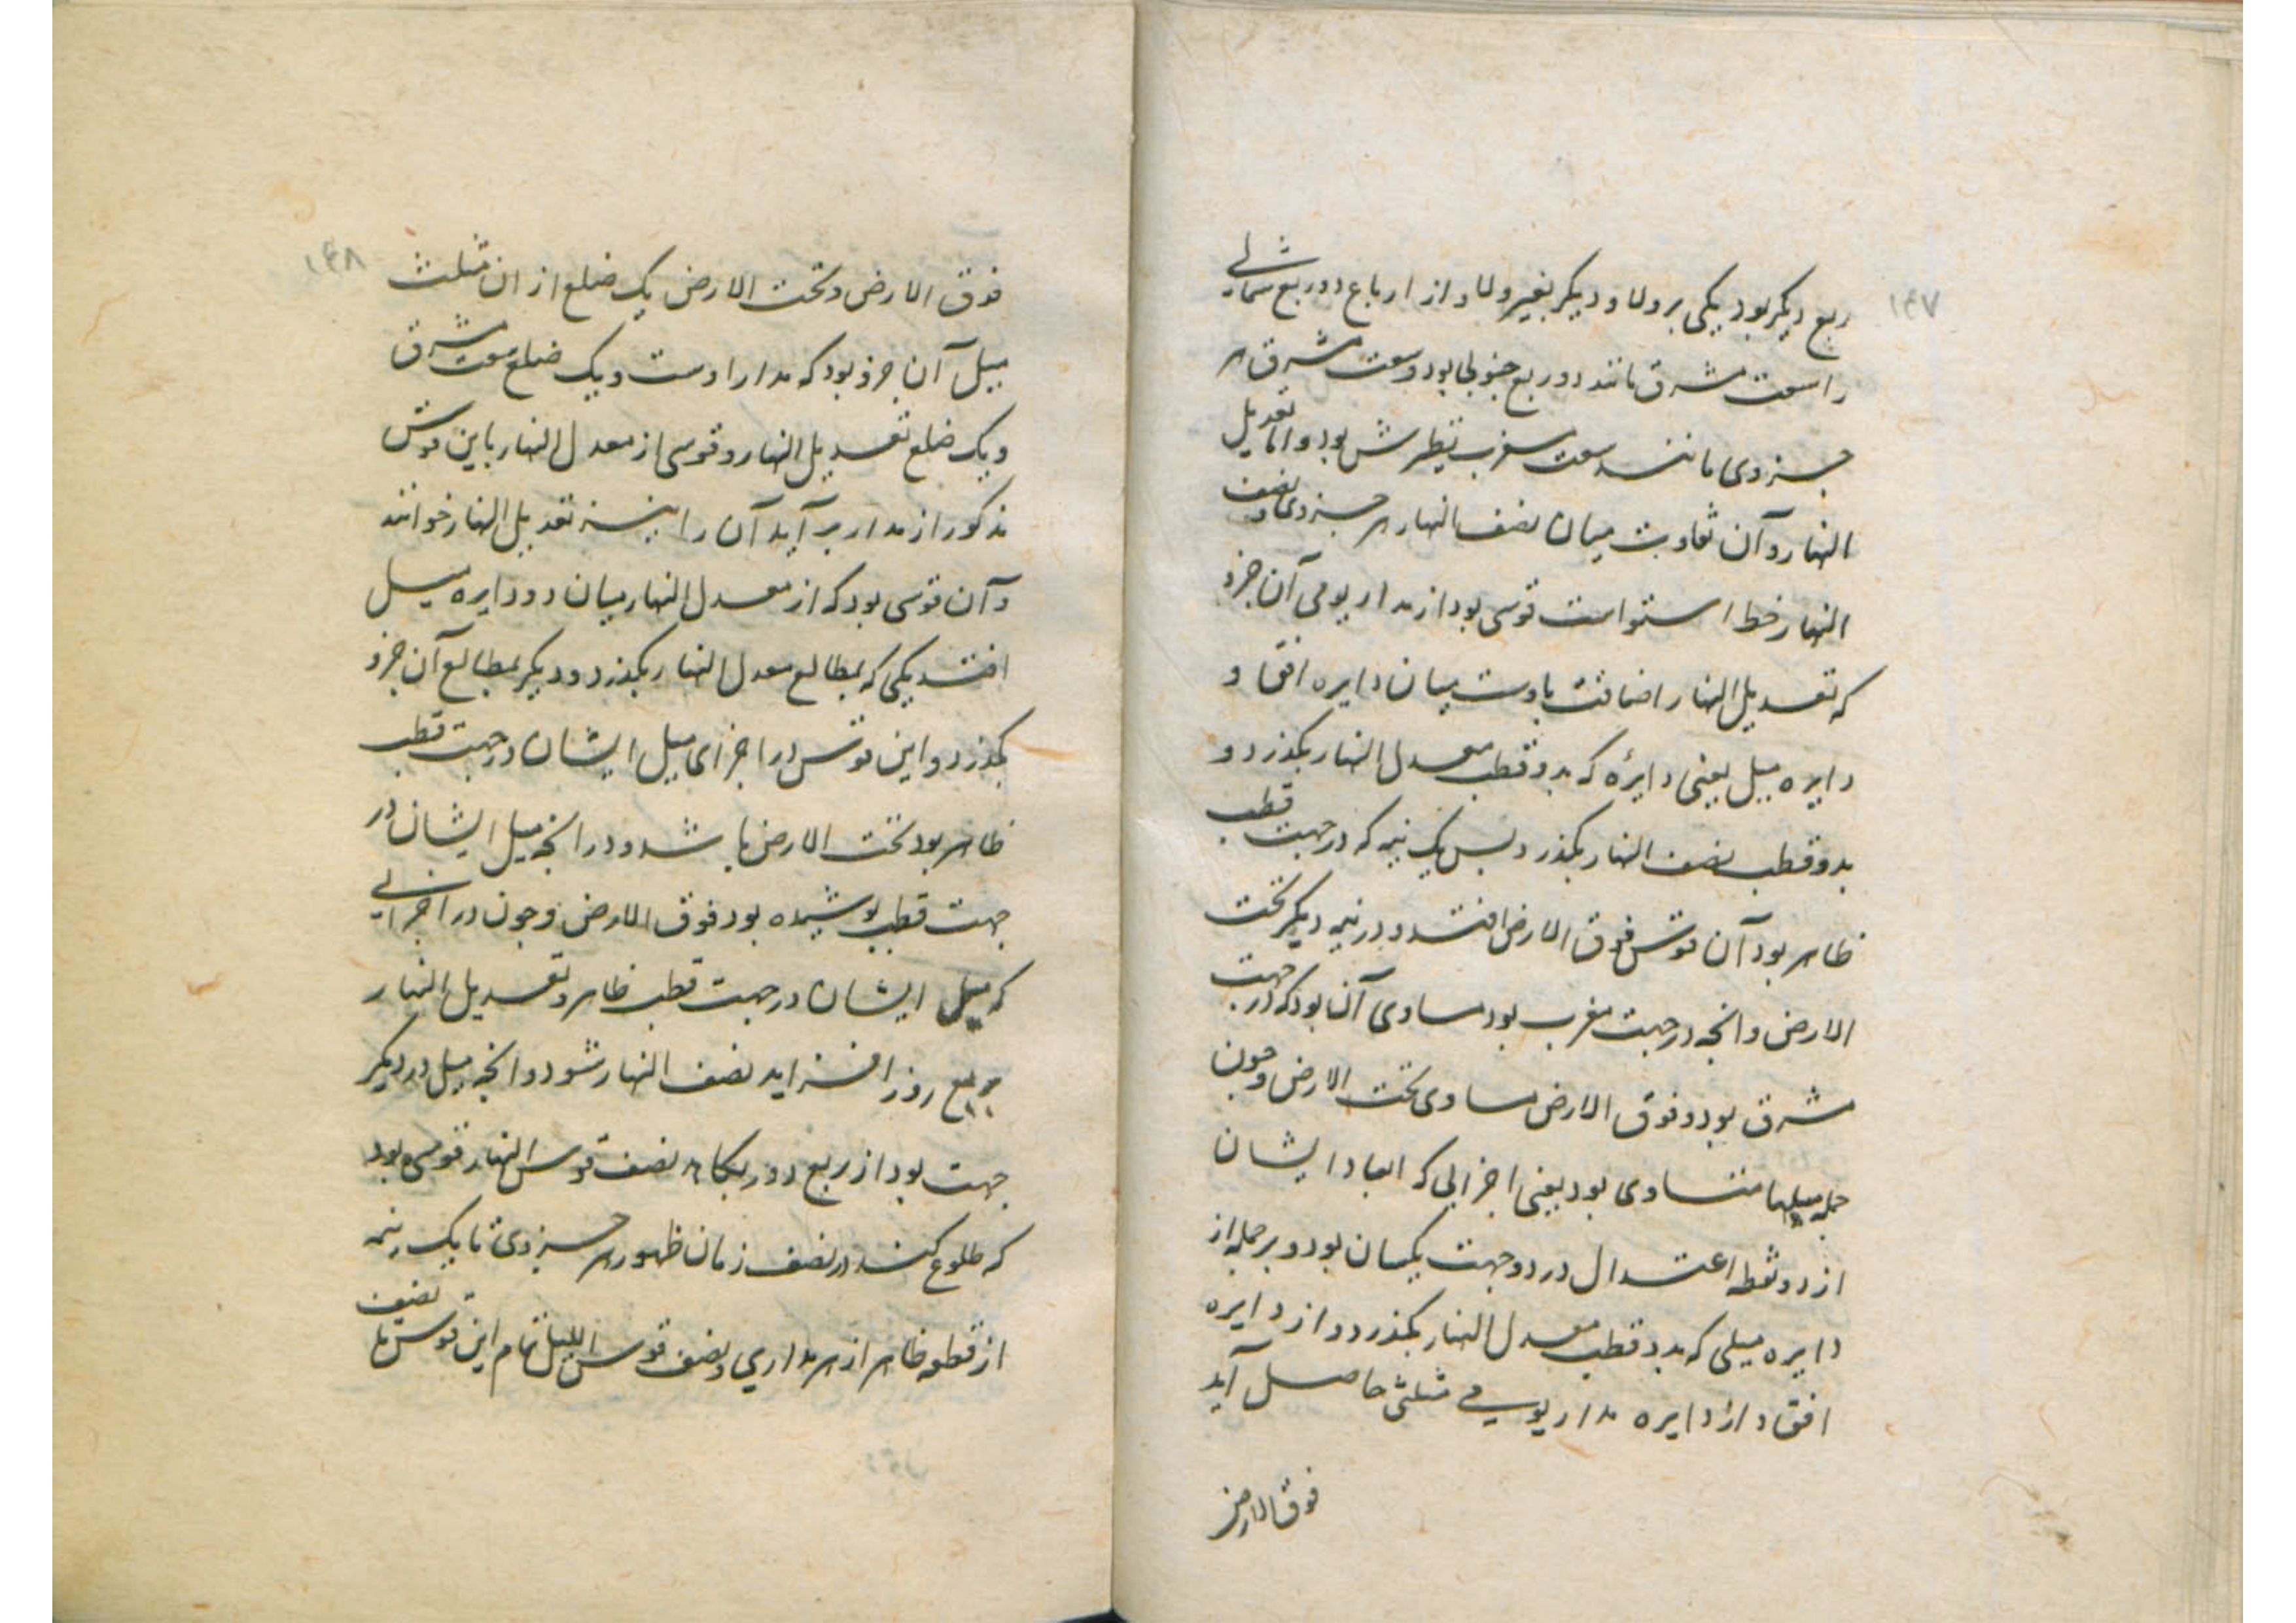 ۱۴۷
ربع دیکر بود یکی بر ولا و دیکر بغیر ولا و از ارباع دو ربع شمالی
را سعت مشرق مانند دو ربع جنوبی بود و سعت مشرق هر
جزوی مانند سعت مغرب نظیرش بود و اما تعدیل
النهار و آن تفاوت میان نصف النهار هر جزوی و نصف
النهار خط استواست قوسی بود از مدار یومی آن جزو
که تعدیل النهار را اضافت باوست میان دایره افق و
دایره میل یعنی دایرهٔ که بدو قطب معدل النهار بکذرد و
بدو قطب نصف النهار بکذرد پس یک نیمه که در جهت قطب
ظاهر بود آن قوس فوق الارض افتد و در نیمه دیکر تحت
الارض و انچه در جهت مغرب بود مساوی آن بود که در جهت
مشرق بود و فوق الارض مساوی تحت الارض و چون
جمله میلها متساوی بود یعنی اجزایی که ابعاد ایشان
از دو نقطه اعتدال در دو جهت یکسان بود و بر جمله از
دایره میلی که بدو قطب معدل النهار بکذرد و از دایره
افق و از دایره مدار یومی مثلثی حاصل آید
فوق الارض
۱۴۸
فوق الارض و تحت الارض یک ضلع از ان مثلث
میل آن جزو بود که مدار اوست و یک ضلع سعت مشرق
و یک ضلع تعدیل النهار و قوسی از معدل النهار باین قوس
مذکور از مدار بر آید آن را نیز تعدیل النهار خوانند
و آن قوسی بود که از معدل النهار میان دو دایره میل
افتد یکی که بمطالع معدل النهار بکذرد و دیکر بمطالع آن جزو
بکذرد و این قوس در اجزای میل ایشان در جهت قطب
ظاهر بود تحت الارض باشد و در انچه میل ایشان در
جهت قطب پوشیده بود فوق الارض و چون در اجزایی
که میل ایشان در جهت قطب ظاهر و تعدیل النهار
بر ربع روز افزاید نصف النهار شود و انچه میل در دیکر
جهت بود از ربع دور بکاهد نصف قوس النهار قوسی بود
که طلوع کند در نصف زمان ظهور هر جزوی تا یک نیمه
از قطعه ظاهر از هر مداری و نصف قوس اللیل تمام این قوس با نصف